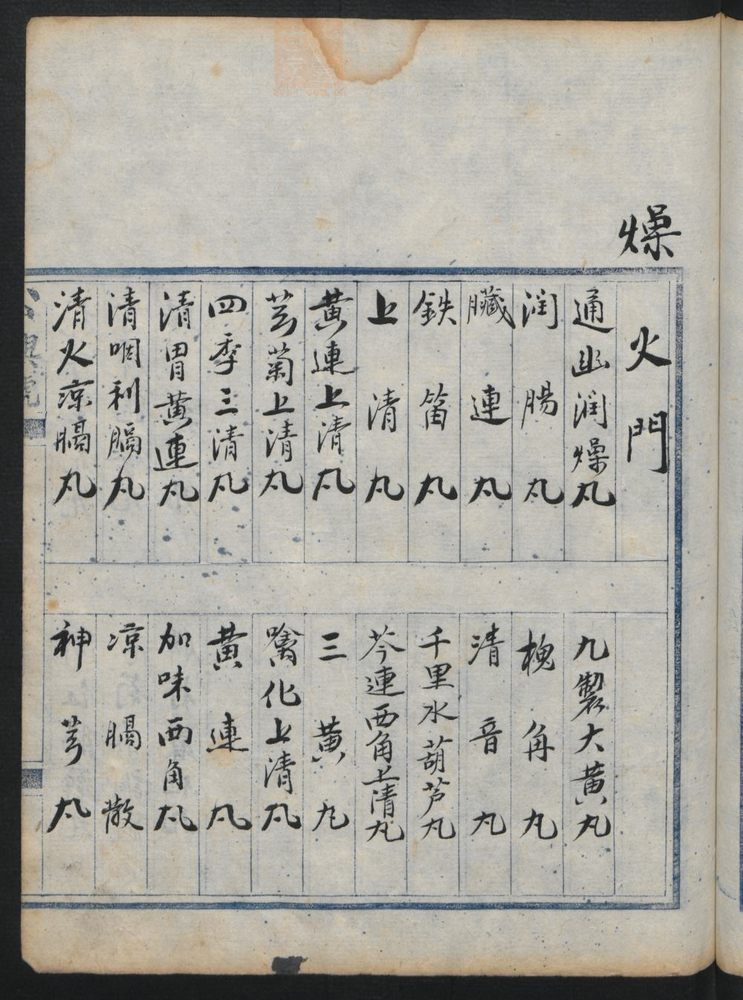 燥
火門
通幽润燥丸
润腸丸
臟連丸
鉄笛丸
上清丸
黄連上清丸
芎菊上清丸
四季三清丸
清胃黄連丸
清咽利膈丸
清火凉膈丸
九製大黄丸
槐角丸
清音丸
千里水葫芦丸
芩連西角上清丸
三黄丸
噙化上清丸
黄連丸
加味西角丸
凉膈散
神芎丸